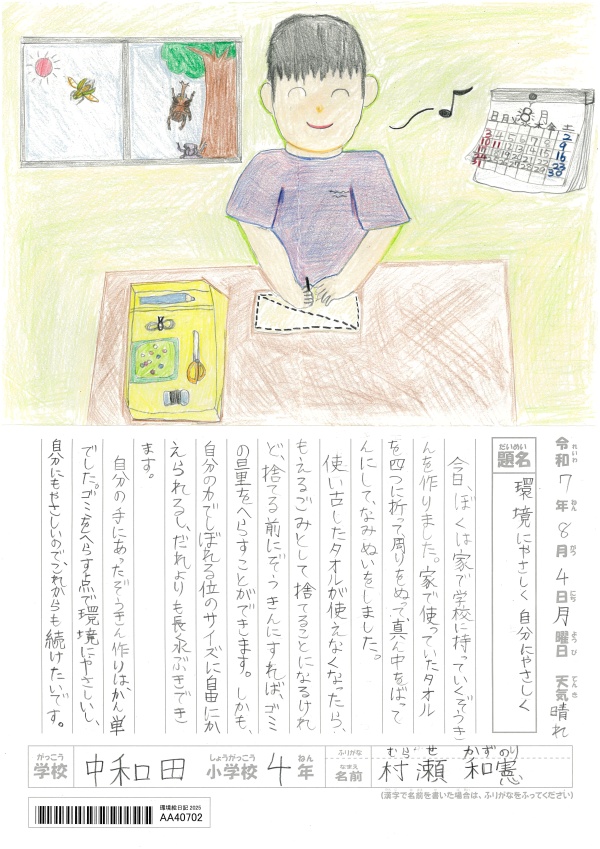 8月
日月火水木金土
令和7年8月4日月曜日 天気 晴れ
れいわ ねん がつ にち ようび てんき
だいめい
題名 環境にやさしく 自分にやさしく
今日、ぼくは家で学校に持っていくぞうき
んを作りました。家で使っていたタオル
を四つに折って周りをぬって、真ん中をばって
んにして、なみぬいをしました。
使い古したタオルが使えなくなったら、
もえるごみとして捨てることになるけれ
ど、捨てる前にぞうきんにすれば、ゴミ
の量をへらすことができます。しかも、
自分の力でしぼれる位のサイズに自由にか
えられるし、だれよりも長く水ぶきでき
ます。
自分の手にあったぞうきん作りはかん単
でした。ゴミをへらす点で環境にやさしいし、
自分にもやさしいので、これからも続けたいです。
がっこう しょうがっこう ねん ふりがな むらせ かずのり
学校 中和田 小学校 4年 なまえ 名前 村瀬 和憲
(漢字で名前を書いた場合は、ふりがなをふってください)
環境絵日記 2025
AA40702